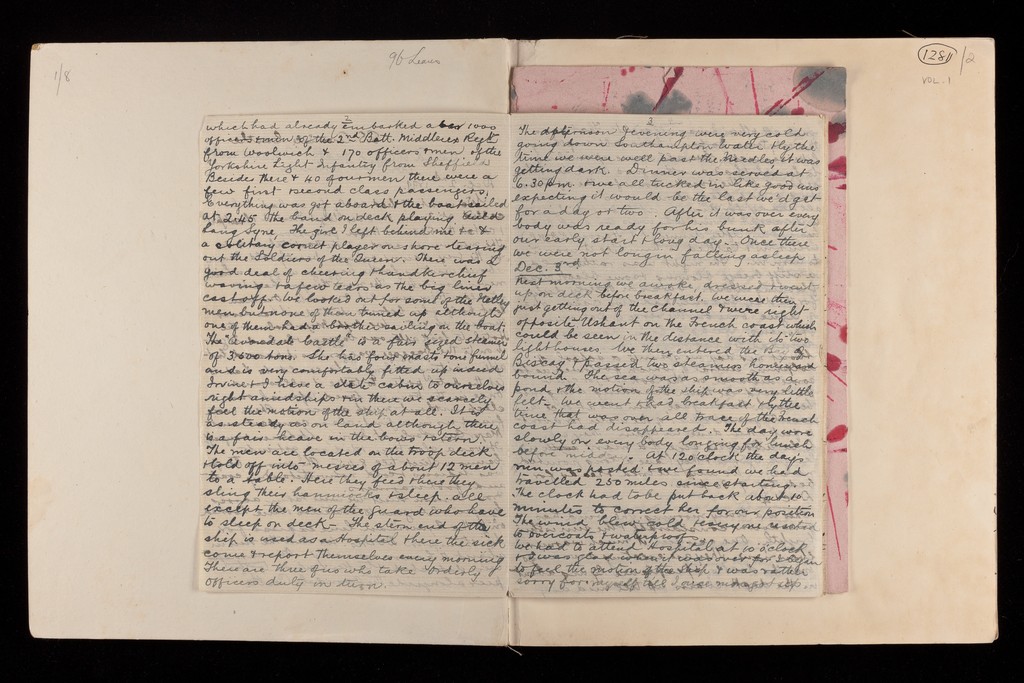 1/8
96 Leaves
2
which had already embarked about 1000
officers & men of the 2nd Batt. Middlesex Regt
from Woolwich & 170 officers & men of the
Yorkshire Light Infantry from Sheffield
Besides these & 40 of our men there were a
few first & second class passengers,
Everything was got aboard & the boat sailed
at 2.45 The band on deck playing auld
Lang Syne, The girl I left behind me &c &
a solitary cornet player on shore tearing
out the Soldiers of the Queen. There was a
good deal of cheering & handkerchief
waving & a few tears as the big liner
cast off. We looked out for some of the Netley
men but none of them turned up although
one of them had a brother sailing in the boat.
The Avondale Castle is a fair sized steamer
of 3500 tons. She has four masts & one funnel
and is very comfortably fitted up indeed
Irvine & I have a state cabin to ourselves
right amidships & in there we scarcely
feel the motion of the ship at all. It is
as steady as on land although there
is a fair heave in the bows & stern.
The men are located on the troop deck
& told off into messes of about 12 men
to a table. Here they feed & here they
sling their hammocks & sleep. all
except the men of the guard who have
to sleep on deck. The stern end of the
ship is used as a Hospital & here the sick
come & report themselves every morning
There are three of us who take Orderly
Officers duty in turn.
1281/2
VOL. 1
3
The afternoon & evening were very cold
going down Southampton Water & by the
time we were well past the Needles it was
getting dark. Dinner was served at
6.30 pm & we all tucked in like good uns
expecting it would be the last we'd get
for a day or two. After it was over every
body was ready for his bunk after
our early start & long day. Once there
we were not long in falling asleep
Dec. 3rd
Next morning we awoke, dressed & went
up on deck before breakfast. We were then
just getting out of the Channel & were right
opposite Ushant on the French coast which
could be seen in the distance with its two
lighthouses. We then entered the Bay of
Biscay & passed two steamers homeward
bound. The sea was as smooth as a
pond & the motion of the ship was very little
felt. We went & had breakfast & by the
time that was over all trace of the French
coast had disappeared. The day wore
slowly on every body longing for lunch
before midday. At 12 o clock the day's
run was posted & we found we had
travelled 250 miles since starting.
The clock had to be put back about 10
minutes to correct her for our position
The wind blew cold & every one resorted
to overcoats & waterproofs.
We had to attend Hospital at 10 o'clock
& I was glad when it was over for I began
to feel the motion of the ship & was rather
sorry for myself